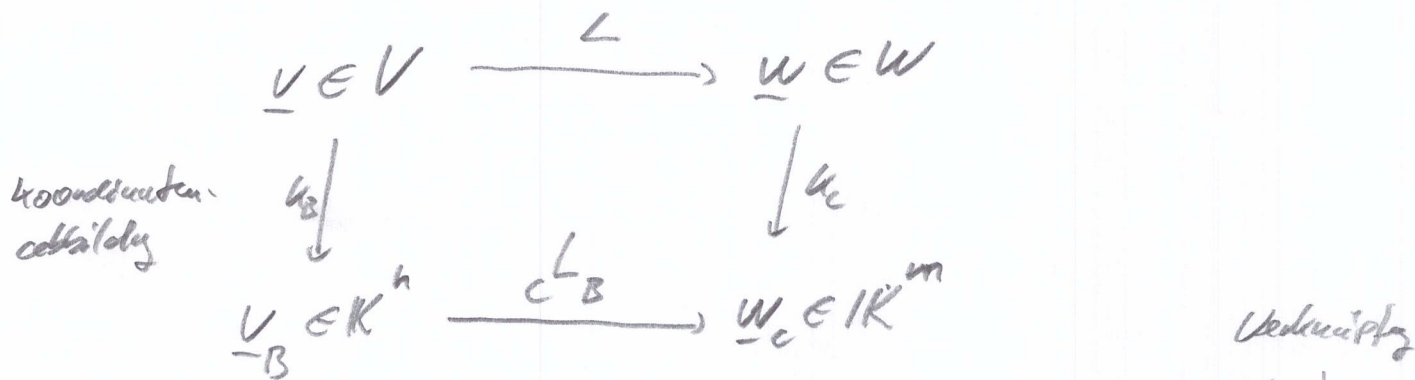 L
v ∈ V → w ∈ W
Koordinaten-
abbildung
k_B k_C
_C L_B
v_B ∈ K^n → w_C ∈ K^m
Verknüpfung